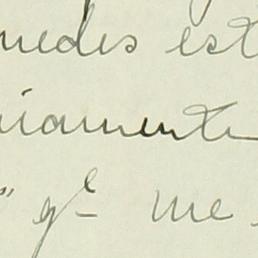 uedes est
iamente
" q^e me